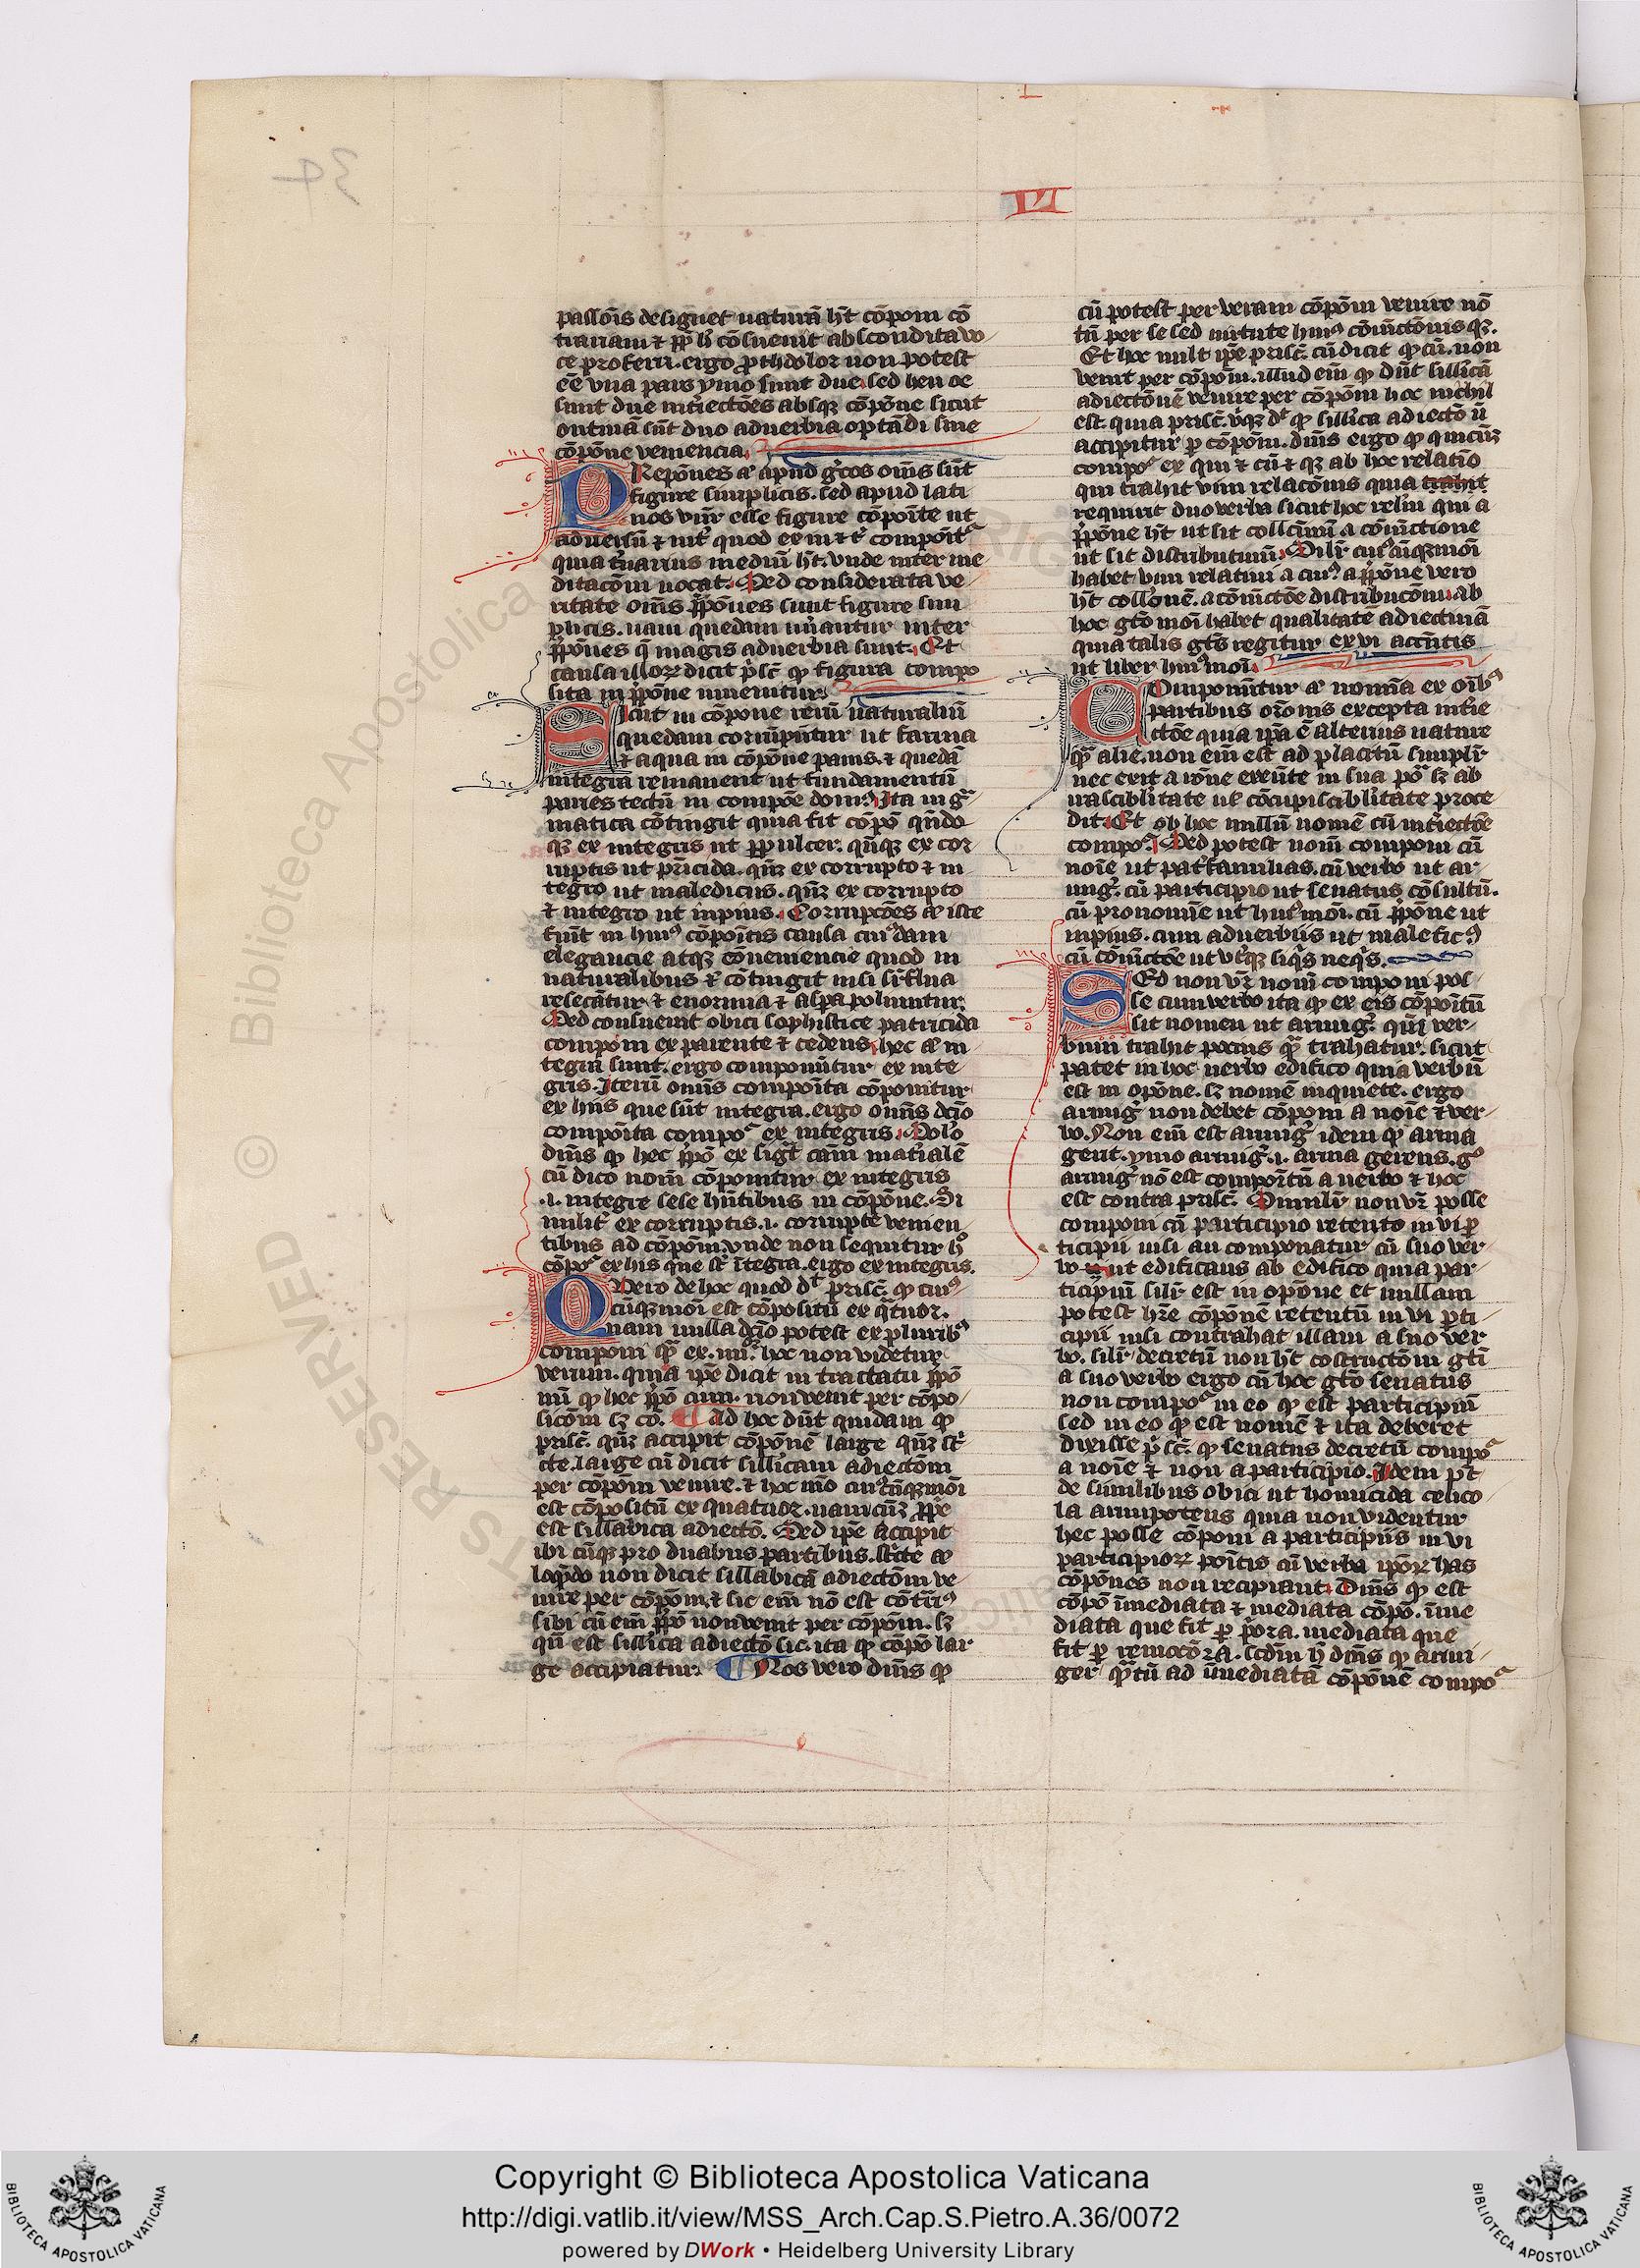 VI
passōis designet naturā hn̄t cōponi cō
ce proferri. ergo proh dolor non potest
eē vna pars ymo sunt due. sed heu oe
sunt due int̄iectōes absqꝫ cōpōne sicut
sūt duo aduerbia optādi sine
cōpōne veniencia.
PRepōnes apud g̊cos om̄s sūt
figure simplicis. sed apud lati
nos vn̄r esse figure cōpoīte ut
aduersū ⁊ int̄ quod ex in ⁊ componīt
quia mediū hn̄t. vnde inter me
ditacōm uocat. Sed considerata ve
ritate om̄s p̄pōnes sunt figure sim
plicis. nam quedam inter
p̄pōnes q̄ magis aduerbia sunt. Et
causa illoꝝ dicit p̄sc̄ ꝙ figura compo
sita in p̄pōne inuenitur.
SIcut in cōpone rerū naturaliū
quedam corrūpuntur ut farina
⁊ aqua in cōpōne panis. ⁊ quedā
integra remanent ut fundamentū
paries tectū in compōe domꝰ. Ita in gͣ
matica cōtingit quia fit cōpō qn̄do
qꝫ ex integris ut qn̄qꝫ ex cor
ruptis ut pricida. qn̄qꝫ ex corrupto ⁊ in
tegro ut maledicus. qn̄qꝫ ex corrupto
⁊ integro ut inpius. Corrupcōes iste
fiūt in huiꝰ cōpoītis causa cuiꝰdam
elegancie atqꝫ cōueniencie quod in
naturalibus cōtingit nisi
resecātur ⁊ enormia ⁊ aspa poliuntur.
Sed consueuit obici sophistice patricida
componi ex parente ⁊ cedens. hec in
tegra sunt. ergo componūtur ex inte
gris. Iterū omīs compoīta cōponitur
ex hiis que sūt integra. ergo omīs dc̄io
compoīta compoͬ ex integris. Solo
dm̄s ꝙ hec p̄pō ex sigt̄ cām mat̄ialē
cū dico nom̄ cōponitur ex integris
.i. integre sese hn̄tibus in cōpōne. Si
milit̄ ex corruptis .i. corrupte venien
tibus ad cōpōm. vnde non sequitur
cōpoͬ ex his que st̄ ītegra. ergo ex integris.
QVero de hoc quod dͭ prisc̄. ꝙ cuiꝰ
cūqꝫmoī est cōpositū ex q̄tuor.
nam nulla dc̄io potest ex pluribꝰ
componi qͣ ex .iiii. hoc non videtur
verum. quia ipē dicit in tractatu p̄pō
nū ꝙ hec p̄pō cum. non venit per cōpo
sicōm sꝫ cō. ¶ Ad hoc dn̄t quidam ꝙ
prisc̄. qn̄qꝫ accipit cōpōnē large qn̄qꝫ st̄
cte. large cū dicit sill'icam adiectōm
per cōpōm venire. ⁊ hoc mō cuiꝰcūqꝫmoī
est cōpositū ex quatuor. nam cūqꝫ p̄pe
est sillabica adiectō. Sed ipē accipit
ibi cūqꝫ pro duabus partibus. st̄cte
loq̄ndo non dicit sillabicā adiectōm ve
nire per cōpōm. ⁊ sic em̄ nō est cōt̄iꝰ
sibi cū em̄ p̄pō non venit per cōpōm. sꝫ
qn̄ est sill'ica adiectō sic. ita ꝙ cōpō lar
ge accipiatur. ¶ Nos vero dm̄s ꝙ
cū potest per veram cōpōm venire nō
tn̄ per se sed uirtute huiꝰ cōiūctōnis qꝫ.
Et hoc uult ipē prisc̄. cū dicit ꝙ cū. non
venit per cōpōm. illud em̄ ꝙ dn̄t sillicā
adiectōnē venire per cōpōm hoc nichil
est. quia prisc̄. dͬ ꝙ sill'ica adiectō n̄
accipitur ꝑ cōpōm. dm̄s ergo ꝙ quicūqꝫ
compoͬ ex qui ⁊ cū ⁊ qꝫ ab hoc relatīo
qui trahit vim relacōnis quia
requirit duo verba sicut hoc relm̄ qui a
p̄pōne hn̄t ut sit collectiuū. a cōiūctione
ut sit distributiuū. Silr̄ cuiꝰcūqꝫmoī
habet vim relatiui a cuiꝰ a p̄pōne vero
hn̄t coll'onē. a cōiūctōe distribucōm. ab
hoc gtō moī habet qualitatē adiectiuā
quia talis gt̄s regitur ex vi accn̄tis
ut liber huiꝰmoī.
COmponūtur nomīa ex oībꝰ
partibus oroīs excepta int̄ie
ctōe quia ipā ē alterius nature
qͣ alie. non em̄ est ad placitū simplr̄
nec exit a rōne exeūte in sua pōͣ sꝫ ab
irasciblitate ul̄ cōcupisciblitate proce
dit. Et ob hoc nullū nomē cū int̄iectōe
compoͬ. Sed potest nom̄ componi cū
noīe ut pat̄familias. cū verbo ut ar
mig̊. cū participio ut senatus cōsultū.
cū pronomīe ut huiꝰmōi. cū p̄pōne ut
inpius. cum aduerbiis ut maleficꝰ
cū cōiūctōe ut vt̄qꝫ siq̄s neq̄s.
SEd non vr̄ nom̄ componi pos
se cum verbo ita ꝙ ex eis cōpoītū
sit nomen ut armig̊. qm̄ ver
bum trahit pocius qͣ trahatur. sicut
patet in hoc uerbo edifico quia verbū
est in opōne. sꝫ nomē inquiete. ergo
armig̊ non debet cōponi a noīe ⁊ ver
bo. Non em̄ est armig̊ idem ꝙ arma
gerit. ymo armig̊ .i. arma gerens. gͦ
armig̊ nō est compoītū a uerbo ⁊ hoc
est contra prisc̄. Similr̄ non vr̄ posse
componi cū participio retento in vi ꝑ
ticipii nisi componatur cū suo ver
bo ut edificans ab edifico quia par
ticipiū silr̄ est in opōne et nullam
potest hr̄e cōpōnē retentū in vi ꝑti
cipii nisi contrahat illam a suo ver
bo. silr̄ decretū non hn̄t costructōm gt̄i
a suo verbo ergo cū hoc gtō senatus
non compoͬ in eo ꝙ est participiū
sed in eo ꝙ est nomē ⁊ ita deberet
dixisse p̄sc̄. ꝙ senatus decretū compoͬ
a noīe ⁊ non a participio. Idem pt̄
de similibus obici ut homicida celico
la armipotens quia non videntur
hec posse cōponi a participiis in vi
participioꝝ poītis cū verba ipōꝝ has
cōpōnes non recipiant. Dm̄s ꝙ est
cōpō īmediata ⁊ mediata cōpō. īme
diata que fit ꝑ p̄ora. mediata que
fit ꝑ remocōra. scdm̄ dm̄s ꝙ armi
ger qͣtū ad īmediatā cōpōnē compoͬ
Copyright © Biblioteca Apostolica Vaticana
http://digi.vatlib.it/view/MSS_Arch.Cap.S.Pietro.A.36/0072
powered by DWork • Heidelberg University Library
BIBLIOTECA APOSTOLICA VATICANA
BIBLIOTECA APOSTOLICA VATICANA